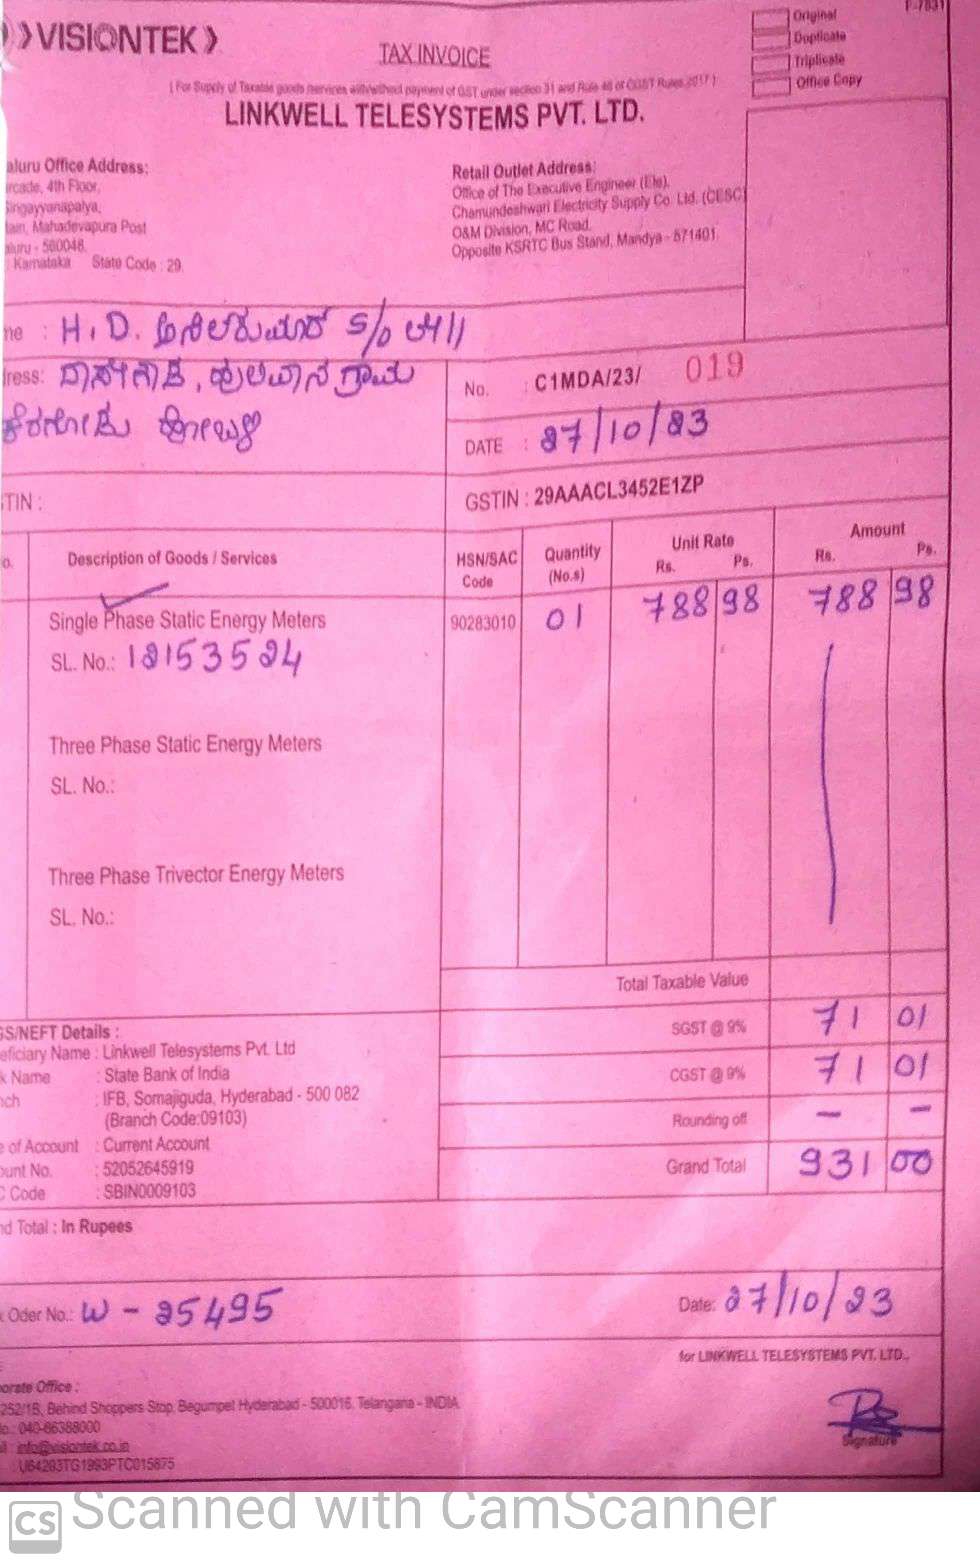 VISIONTEK
P-7831
TAX INVOICE
Original
Duplicate
Triplicate
Office Copy
( For Supply of Taxable goods /services with/without payment of GST under section 31 and Rule 46 of CGST Rules 2017 )
LINKWELL TELESYSTEMS PVT. LTD.
aluru Office Address:
rcade, 4th Floor,
Singayyanapalya,
Main, Mahadevapura Post
aluru - 560048.
: Karnataka State Code : 29.
Retail Outlet Address:
Office of The Executive Engineer (Ele),
Chamundeshwari Electricity Supply Co. Ltd. (CESC)
O&M Division, MC Road.
Opposite KSRTC Bus Stand, Mandya - 571401.
me : H.D. ಅನಿಲಕುಮಾರ್ S/o
ress: ಹುಲಿವಾನ ಗ್ರಾಮ
ಕೆರಗೋಡು ಹೋಬಳಿ
No. : C1MDA/23/ 019
DATE : 27/10/23
STIN :
GSTIN : 29AAACL3452E1ZP
o. Description of Goods / Services HSN/SAC Code Quantity (No.s) Unit Rate Rs. Ps. Amount Rs. Ps.
Single Phase Static Energy Meters 90283010 01 788 98 788 98
SL. No.: 12153524
Three Phase Static Energy Meters
SL. No.:
Three Phase Trivector Energy Meters
SL. No.:
Total Taxable Value
SGST @ 9% 71 01
CGST @ 9% 71 01
Rounding off - -
Grand Total 931 00
GS/NEFT Details :
eficiary Name : Linkwell Telesystems Pvt. Ltd
k Name : State Bank of India
nch : IFB, Somajiguda, Hyderabad - 500 082
(Branch Code:09103)
e of Account : Current Account
ount No. : 52052645919
C Code : SBIN0009103
nd Total : In Rupees
Oder No.: W - 25495
Date: 27/10/23
for LINKWELL TELESYSTEMS PVT. LTD.,
orate Office :
252/1B, Behind Shoppers Stop, Begumpet Hyderabad - 500016, Telangana - INDIA
o.: 040-66388000
il : info@visiontek.co.in
: U64203TG1993PTC015875
Signature
CS Scanned with CamScanner